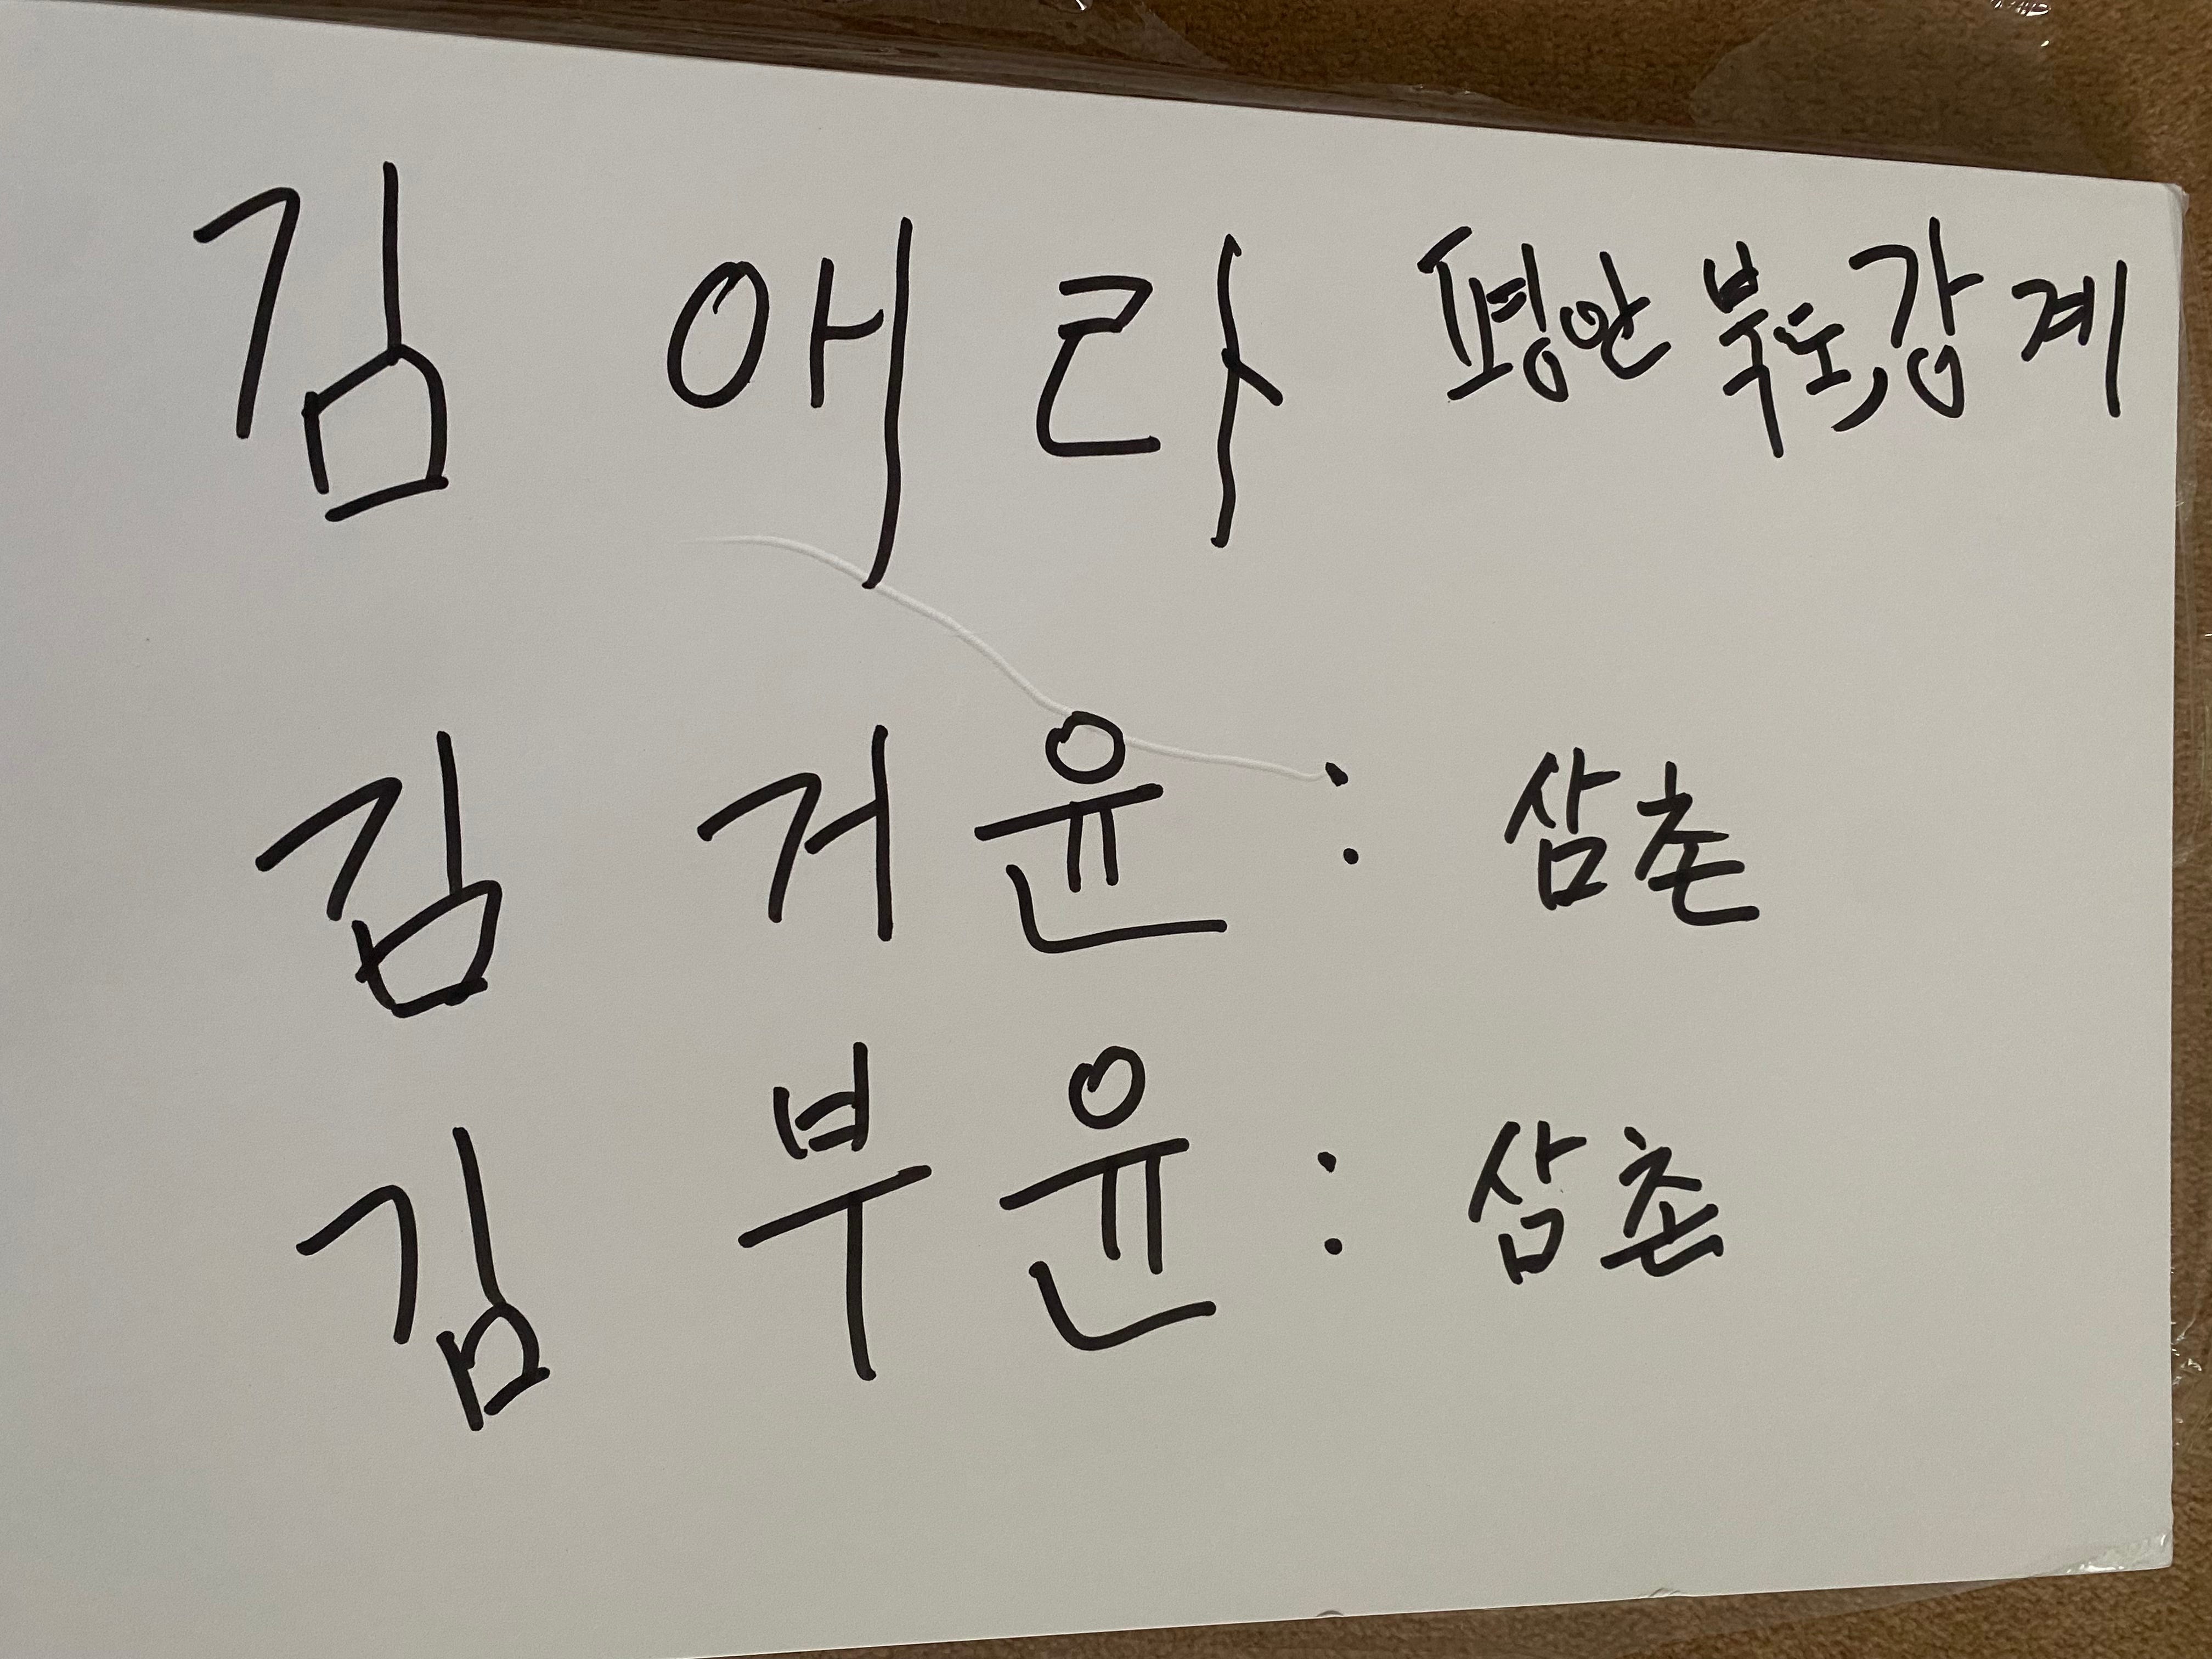 김 애 라 평안 북도, 강계
김 거 윤 : 삼촌
김 부 윤 : 삼촌